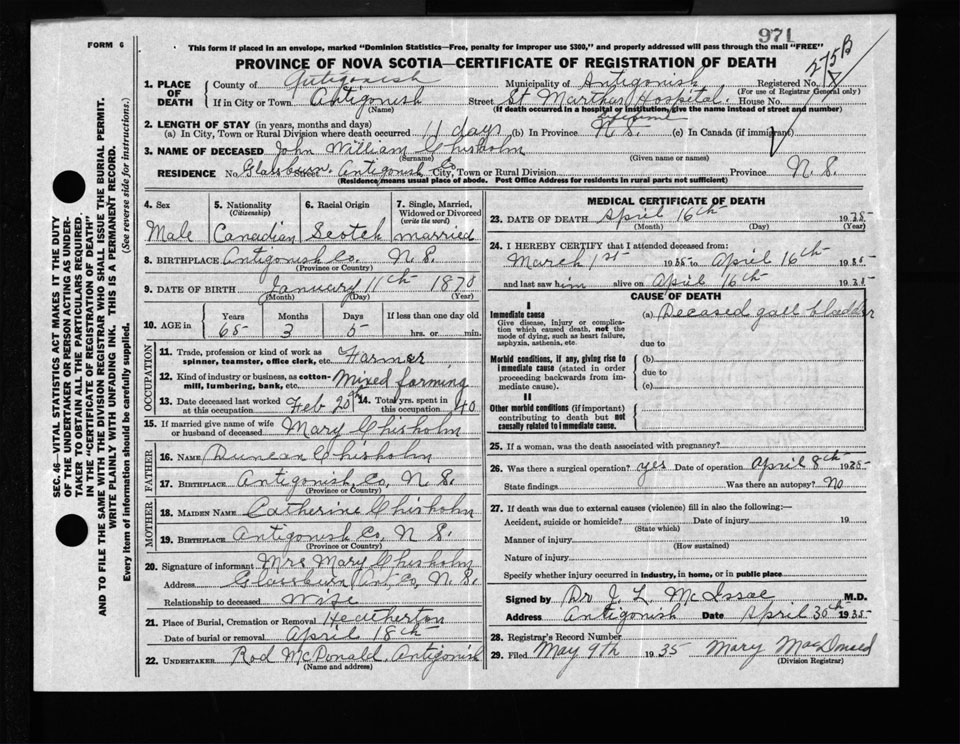 971
FORM 6
This form if placed in an envelope, marked "Dominion Statistics—Free, penalty for improper use $300," and properly addressed will pass through the mail "FREE"
PROVINCE OF NOVA SCOTIA—CERTIFICATE OF REGISTRATION OF DEATH
275B
1. PLACE OF DEATH
County of Antigonish Municipality of Antigonish Registered No.
(For use of Registrar General only)
If in City or Town Antigonish Street St Marthas Hospital House No.
(Name) (If death occurred in a hospital or institution, give the name instead of street and number)
2. LENGTH OF STAY (in years, months and days)
(a) In City, Town or Rural Division where death occurred days (b) In Province Lifetime N S. (c) In Canada (if immigrant)
3. NAME OF DECEASED John William Chisholm
(Surname) (Given name or names)
RESIDENCE No. Glassburn Street Antigonish Co City, Town or Rural Division Province N S.
(Residence means usual place of abode. Post Office Address for residents in rural parts not sufficient)
SEC. 46—VITAL STATISTICS ACT MAKES IT THE DUTY
OF THE UNDERTAKER OR PERSON ACTING AS UNDER-
TAKER TO OBTAIN ALL THE PARTICULARS REQUIRED.
IN THE "CERTIFICATE OF REGISTRATION OF DEATH"
AND TO FILE THE SAME WITH THE DIVISION REGISTRAR WHO SHALL ISSUE THE BURIAL PERMIT.
WRITE PLAINLY WITH UNFADING INK. THIS IS A PERMANENT RECORD.
Every item of information should be carefully supplied. (See reverse side for instructions.)
4. Sex
Male
5. Nationality
(Citizenship)
Canadian
6. Racial Origin
Scotch
7. Single, Married, Widowed or Divorced
(write the word)
married
8. BIRTHPLACE Antigonish Co. N S.
(Province or Country)
9. DATE OF BIRTH January 11th 1870
(Month) (Day) (Year)
10. AGE in
Years Months Days If less than one day old
65 3 5 hrs. or min.
OCCUPATION
11. Trade, profession or kind of work as spinner, teamster, office clerk, etc. Farmer
12. Kind of industry or business, as cotton-mill, lumbering, bank, etc. Mixed farming
13. Date deceased last worked at this occupation Feb 20th
14. Total yrs. spent in this occupation 40
15. If married give name of wife or husband of deceased Mary Chisholm
FATHER
16. NAME Duncan Chisholm
17. BIRTHPLACE Antigonish, Co, N S.
(Province or Country)
MOTHER
18. MAIDEN NAME Catherine Chisholm
19. BIRTHPLACE Antigonish Co, N S.
(Province or Country)
20. Signature of informant Mrs Mary Chisholm
Address Glassburn Ant, Co, N. S.
Relationship to deceased Wife
21. Place of Burial, Cremation or Removal Heatherton
Date of burial or removal April 18th
22. UNDERTAKER Rod McDonald, Antigonish
(Name and address)
MEDICAL CERTIFICATE OF DEATH
23. DATE OF DEATH April 16th 1935
(Month) (Day) (Year)
24. I HEREBY CERTIFY that I attended deceased from:
March 1st 1935 to April 16th 1935
and last saw him alive on April 16th 193
CAUSE OF DEATH
I
Immediate cause
Give disease, injury or complication which caused death, not the mode of dying, such as heart failure, asphyxia, asthenia, etc.
(a) Deceased gall bladder
due to
Morbid conditions, if any, giving rise to immediate cause (stated in order proceeding backwards from immediate cause).
(b)
due to
(c)
II
Other morbid conditions (if important) contributing to death but not causally related to immediate cause.
25. If a woman, was the death associated with pregnancy?
26. Was there a surgical operation? yes Date of operation April 8th 1935
State findings Was there an autopsy? No
27. If death was due to external causes (violence) fill in also the following:—
Accident, suicide or homicide? Date of injury 19
(State which)
Manner of injury
(How sustained)
Nature of injury
Specify whether injury occurred in industry, in home, or in public place
Signed by Dr J. L McIssac M.D.
Address Antigonish Date April 30th 1935
28. Registrar's Record Number
29. Filed May 9th 1935 Mary MacDonald
(Division Registrar)